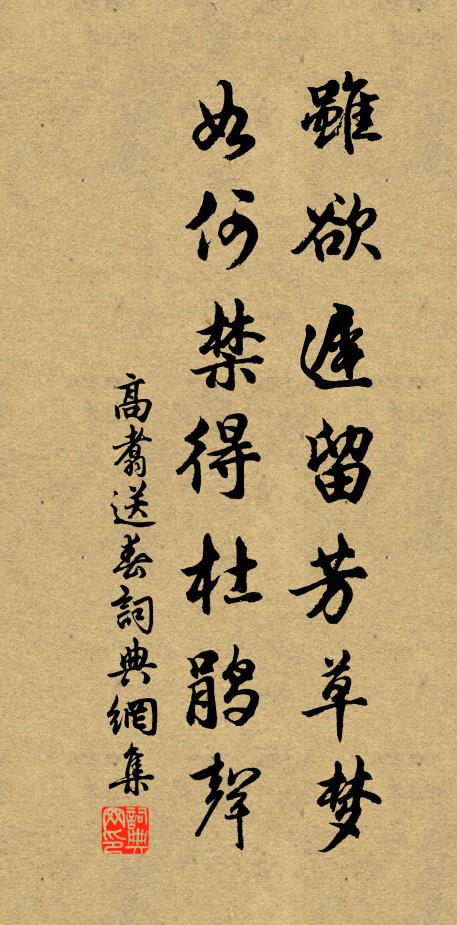 雖欲遲留芳草梦
如何禁得杜鹃聲
高翥送春詞典網集
詞典网印